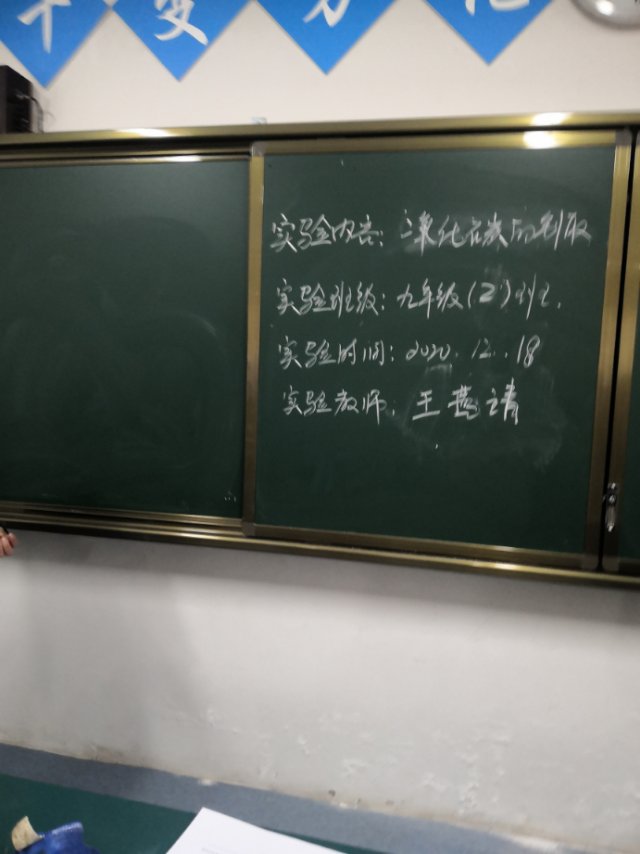 千变万化
实验内容：二氧化碳的制取
实验班级：九年级（2）班.
实验时间：2020.12.18
实验教师：王燕靖